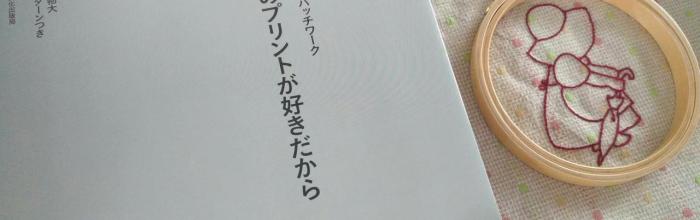 パッチワーク
のプリントが好きだから
ターンつき